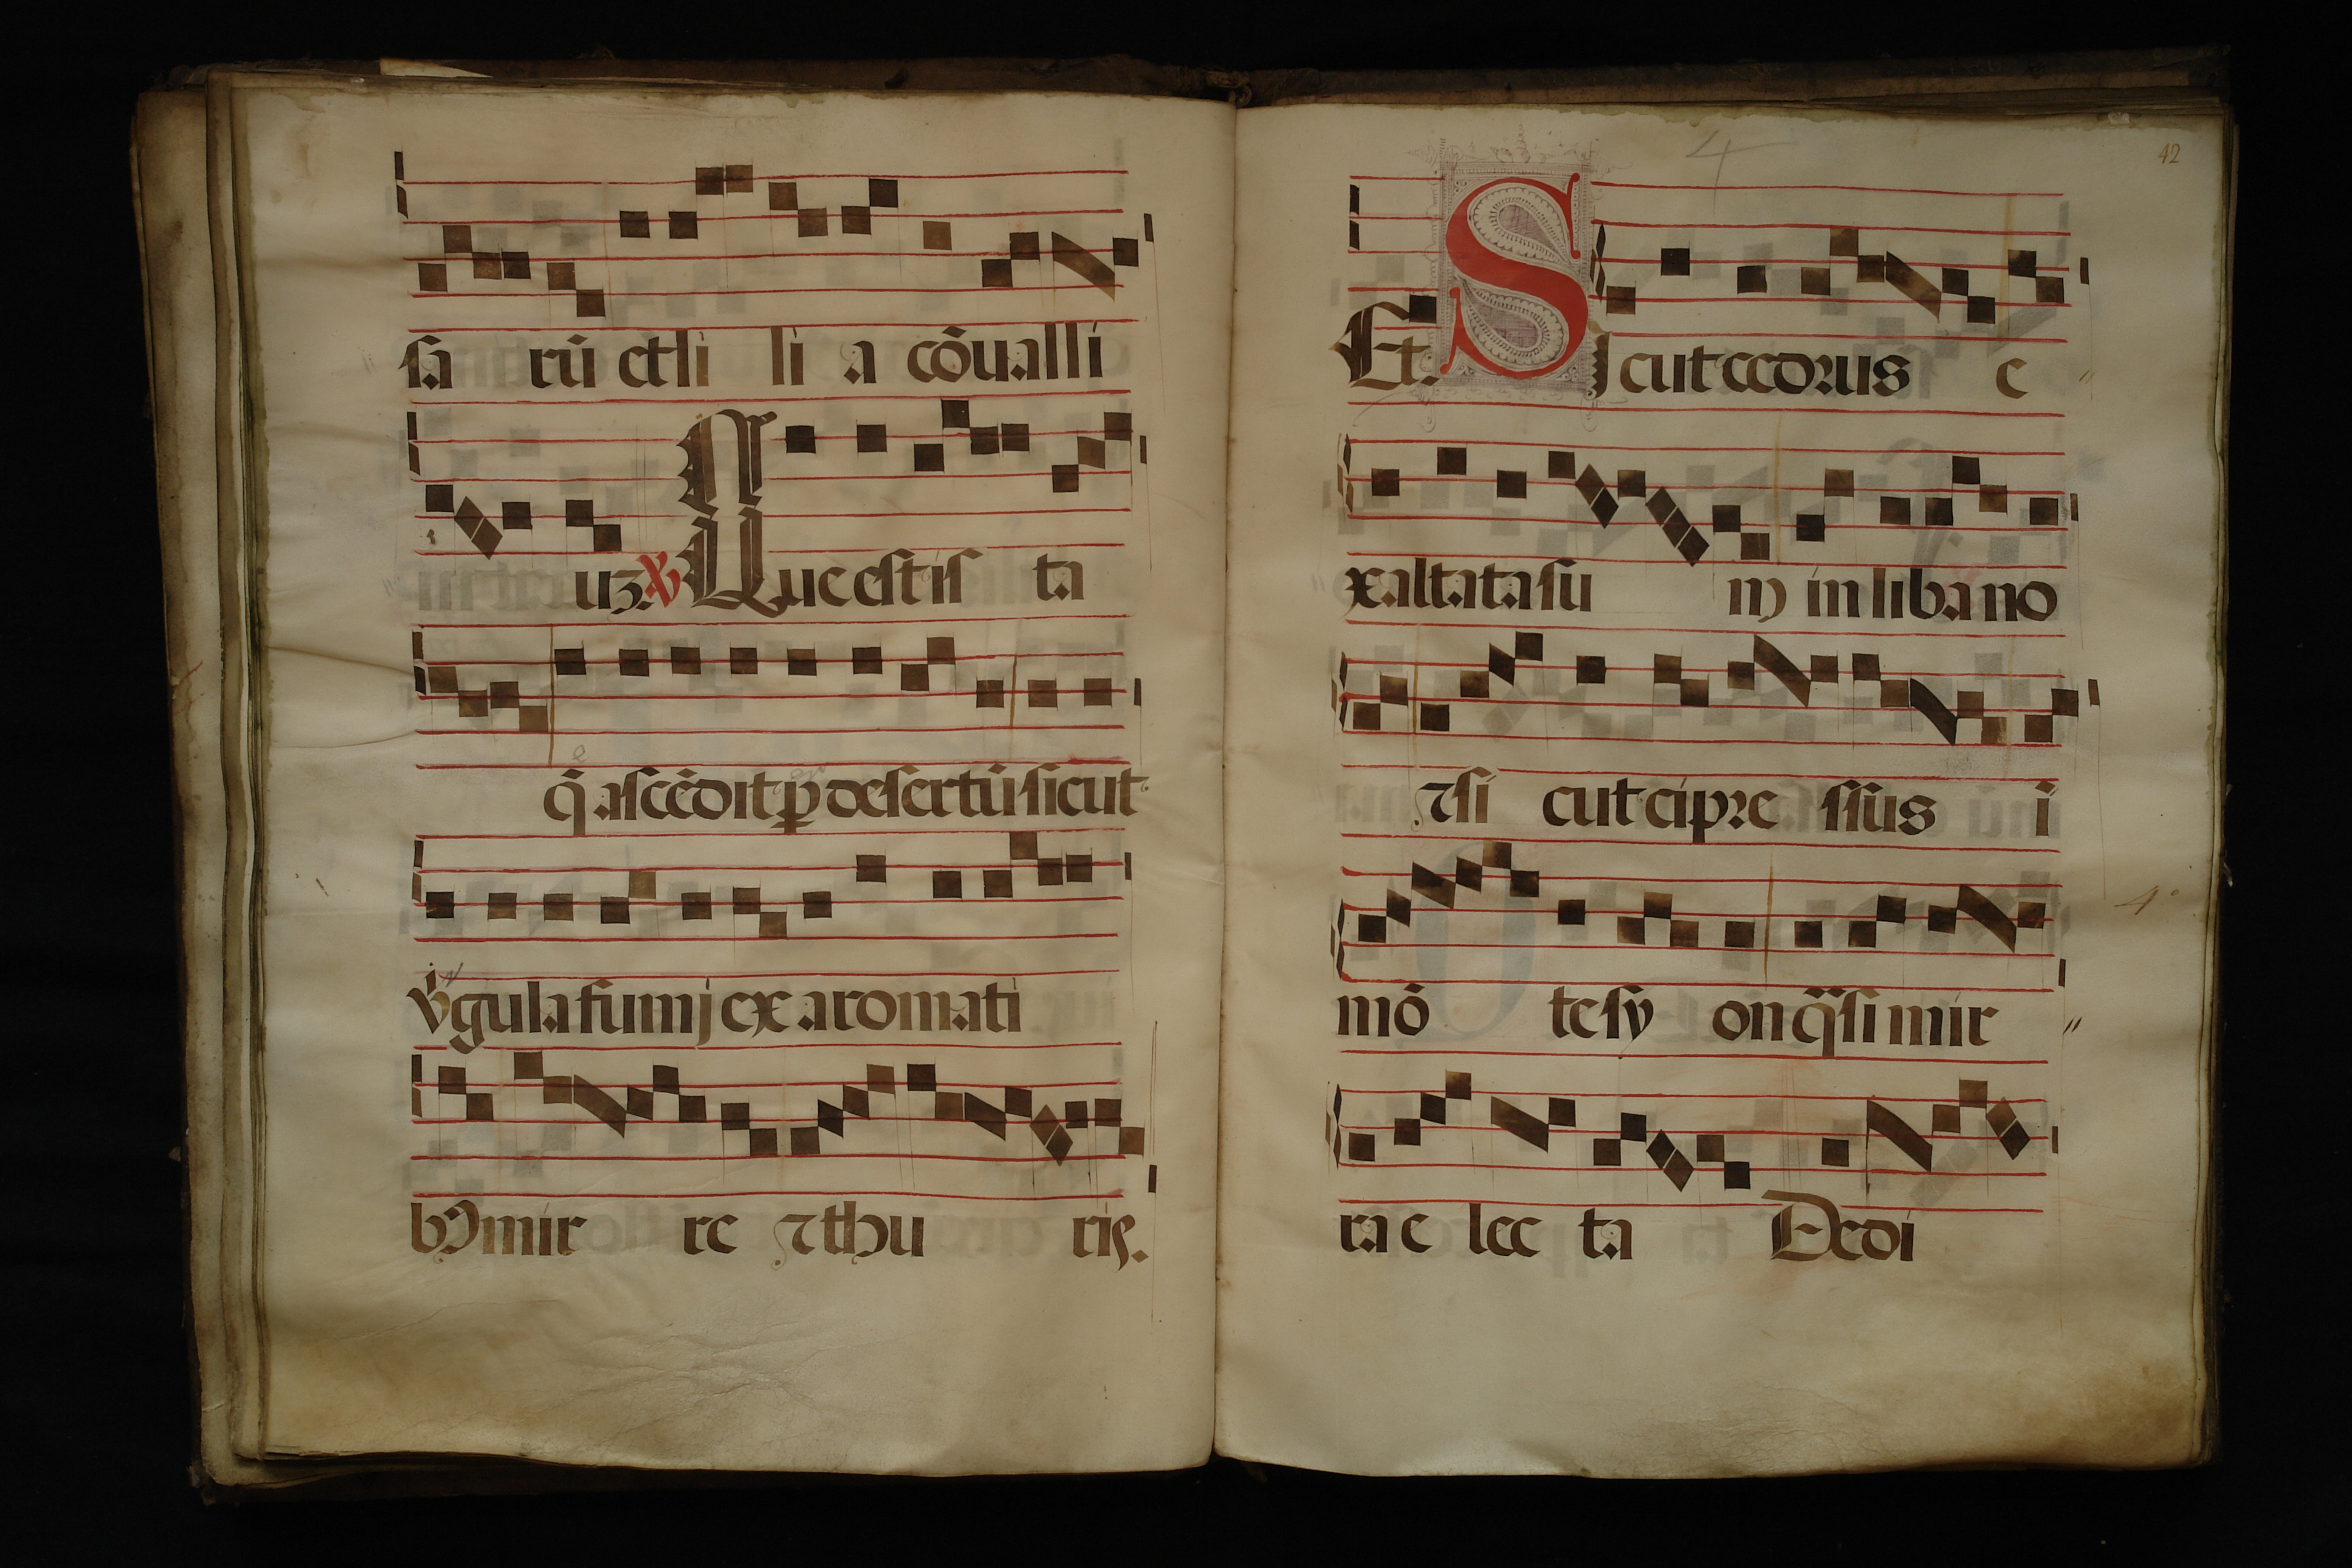 sa rū ⁊ li li a cōualli
uʒ. ℣ Que est is ta
q̄ ascēdit ꝑ desertū sicut
v̇gula fumj ex aromati
bꝰ mir re ⁊ thu ris.
42
4
Et. Sicut cedrus e
xaltata su m in libano
⁊ si cut cipre ssus i
mō te sy on q̄si mir
4º
ra e lec ta Dedi